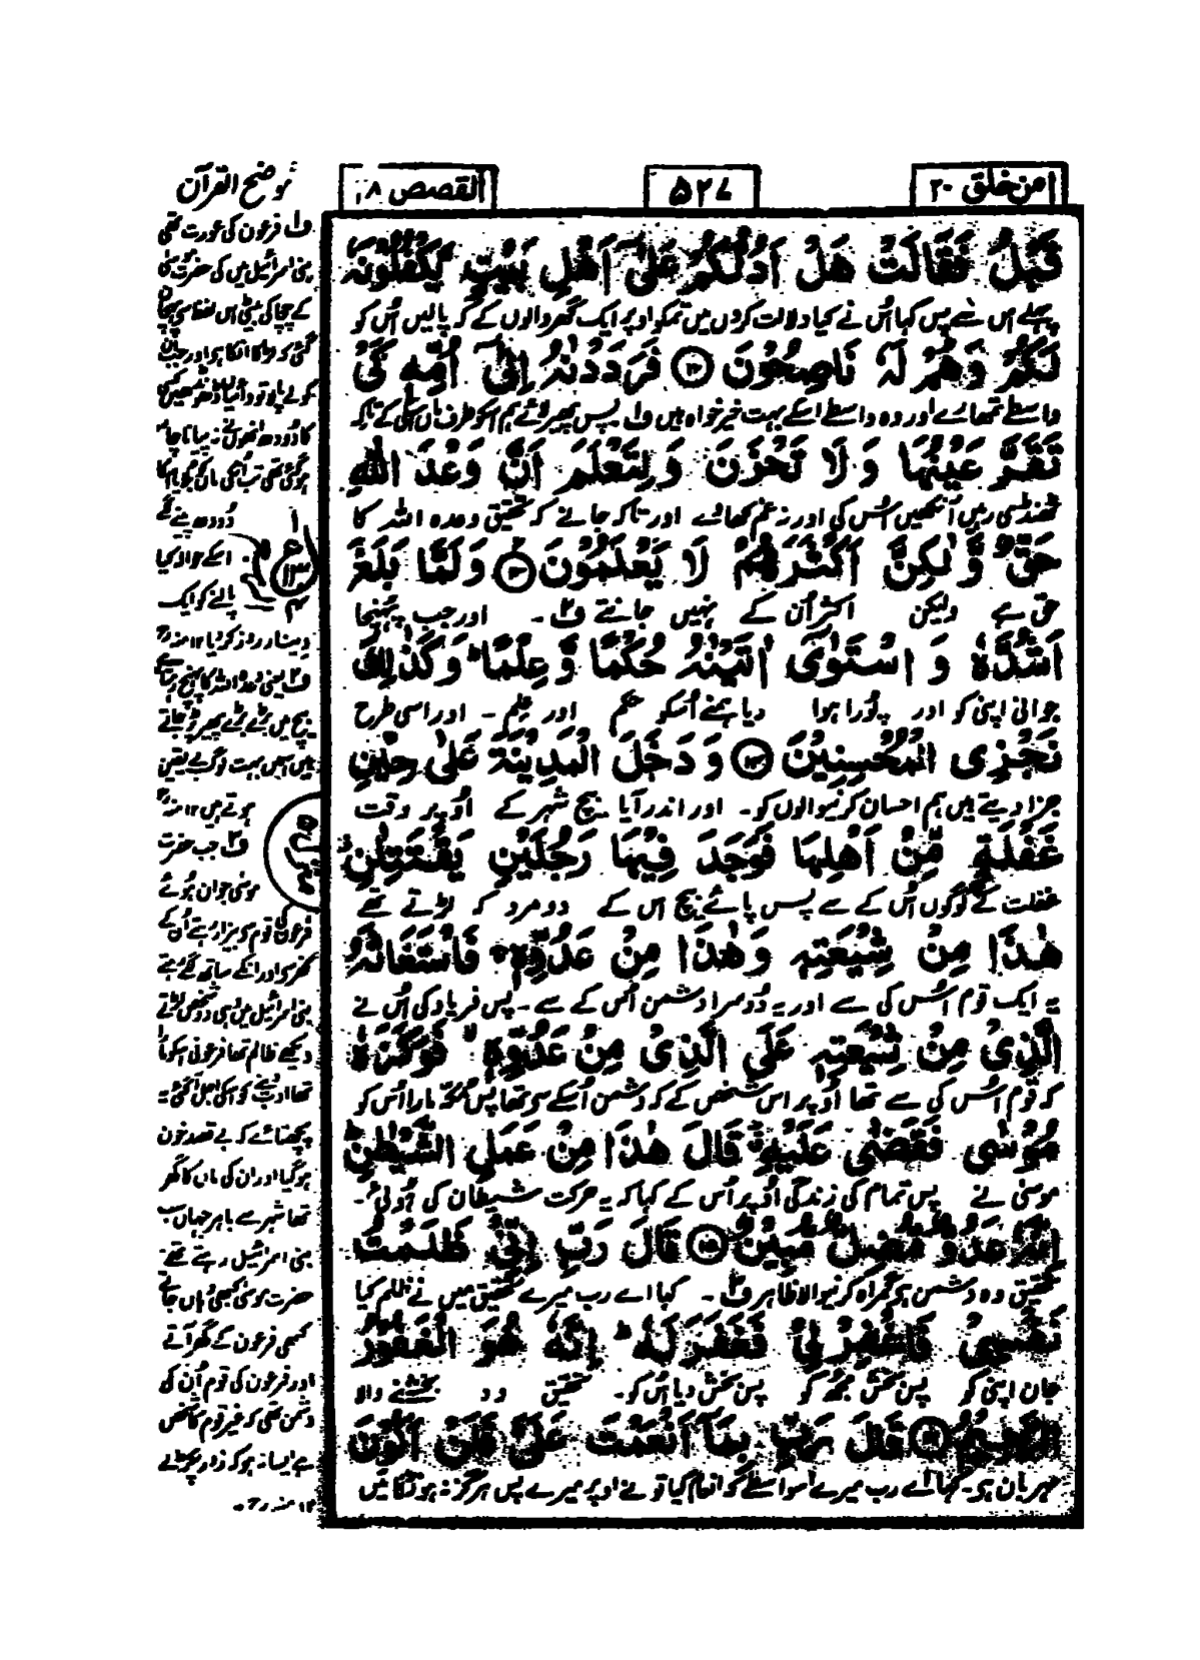 امن خلق ۲۰
۵۲۷
القصص ۲۸
موضح القرآن
قَبْلُ فَقَالَتْ هَلْ اَدُلُّكُمْ عَلٰٓى اَهْلِ بَيْتٍ يَّكْفُلُوْنَهٗ
پہلے اس سے پس کہا اُس نے کیا دلالت کروں میں تمکو اوپر ایک گھر والوں کے کہ پالیں اُس کو
لَكُمْ وَهُمْ لَهٗ نَاصِحُوْنَ ۝ فَرَدَدْنٰهُ اِلٰٓى اُمِّهٖ كَىْ
واسطے تمہارے اور وہ واسطے اسکے بہت خیر خواہ ہیں ف۱ پس پھیر لائے ہم اسکو طرف ماں اسکی کے تاکہ
تَقَرَّ عَيْنُهَا وَ لَا تَحْزَنَ وَ لِتَعْلَمَ اَنَّ وَعْدَ اللّٰهِ
ٹھنڈی رہیں آنکھیں اُس کی اور نہ غم کھاوے اور تاکہ جانے کہ تحقیق وعدہ اللہ کا
حَقٌّ وَّ لٰكِنَّ اَكْثَرَهُمْ لَا يَعْلَمُوْنَ ۝ وَ لَمَّا بَلَغَ
حق ہے ولیکن اکثر اُن کے نہیں جانتے ف۲۔ اور جب پہنچا
اَشُدَّهٗ وَ اسْتَوٰٓى اٰتَيْنٰهُ حُكْمًا وَّ عِلْمًا ؕ وَ كَذٰلِكَ
جوانی اپنی کو اور پورا ہوا دیا ہمنے اُسکو حکم اور علم ۔ اور اسی طرح
نَجْزِى الْمُحْسِنِيْنَ ۝ وَ دَخَلَ الْمَدِيْنَةَ عَلٰى حِيْنِ
جزا دیتے ہیں ہم احسان کرنیوالوں کو۔ اور اندر آیا بیچ شہر کے اوپر وقت
غَفْلَةٍ مِّنْ اَهْلِهَا فَوَجَدَ فِيْهَا رَجُلَيْنِ يَقْتَتِلٰنِ
غفلت کے لوگوں اُس کے سے پس پائے بیچ اس کے دو مرد کہ لڑتے تھے
هٰذَا مِنْ شِيْعَتِهٖ وَ هٰذَا مِنْ عَدُوِّهٖ ۚ فَاسْتَغَاثَهُ
یہ ایک قوم اُس کی سے اور یہ دُوسرا دشمن اُس کے سے ۔ پس فریاد کی اُس نے
الَّذِىْ مِنْ شِيْعَتِهٖ عَلَى الَّذِىْ مِنْ عَدُوِّهٖ ۙ فَوَكَزَهٗ
کہ قوم اُس کی سے تھا اُوپر اس شخص کے کہ دشمن اُسکے سے تھا پس مکہ مارا اُس کو
مُوْسٰى فَقَضٰى عَلَيْهِ ؗ قَالَ هٰذَا مِنْ عَمَلِ الشَّيْطٰنِ ؕ
موسیٰ نے پس تمام کی زندگی اُوپر اُس کے کہا کہ یہ حرکت شیطان کی ہوئی ۔
اِنَّهٗ عَدُوٌّ مُّضِلٌّ مُّبِيْنٌ ۝ قَالَ رَبِّ اِنِّىْ ظَلَمْتُ
تحقیق وہ دشمن ہے گمراہ کرنیوالا ظاہر ف۳ ۔ کہا اے رب میرے تحقیق میں نے ظلم کیا
نَفْسِىْ فَاغْفِرْ لِىْ فَغَفَرَ لَهٗ ؕ اِنَّهٗ هُوَ الْغَفُوْرُ
جان اپنی کو پس بخش مجھ کو پس بخش دیا اُس کو۔ تحقیق وہ بخشنے والا
الرَّحِيْمُ ۝ قَالَ رَبِّ بِمَآ اَنْعَمْتَ عَلَىَّ فَلَنْ اَكُوْنَ
مہربان ہے۔ کہا اے رب میرے اسواسطے کہ انعام کیا تو نے اوپر میرے پس ہرگز نہ ہونگا میں
ف۱ فرعون کی عورت تھی
بنی اسرائیل میں کی حضرت موسیٰ
کے چچا کی بیٹی اس لفظ سے پہچان
کا دودھ انھوں نے نہ پیا
دودھ پینے لگے
اسکے حوالہ کیا
پالنے کو ایک
دینار روز کر دیا ۱۲ منہ رح
ف۲ یعنی وعدہ اللہ کا پہنچ رہتا ہے
بیچ میں بڑے بڑے پھیر پڑ جاتے
ہیں اسمیں بہت لوگ بے یقین
ہوتے ہیں ۱۲ منہ رح
ف۳ جب حضرت
موسیٰ جوان ہوئے
فرعون کی قوم سے بیزار رہتے اُن کے
کفر سے اور انکے ساتھ لگے رہتے
بنی اسرائیل میں سے دو شخص لڑتے
دیکھے ظالم تھا فرعونی اسکو مارا
تھا ادب دینے کو اسکی اجل آ گئی یہ
پچھتائے کہ بے قصد خون
ہو گیا اور ان کی ماں کا گھر
تھا شہر سے باہر جہاں سب
بنی اسرائیل رہتے تھے
حضرت موسیٰ کبھی وہاں جاتے
کبھی فرعون کے گھر آتے
اور فرعون کی قوم اُن کی
دشمن تھی کہ غیر قوم کا شخص
ہے ایسا نہ ہو کہ زور پکڑے
۱۲ منہ رح۔